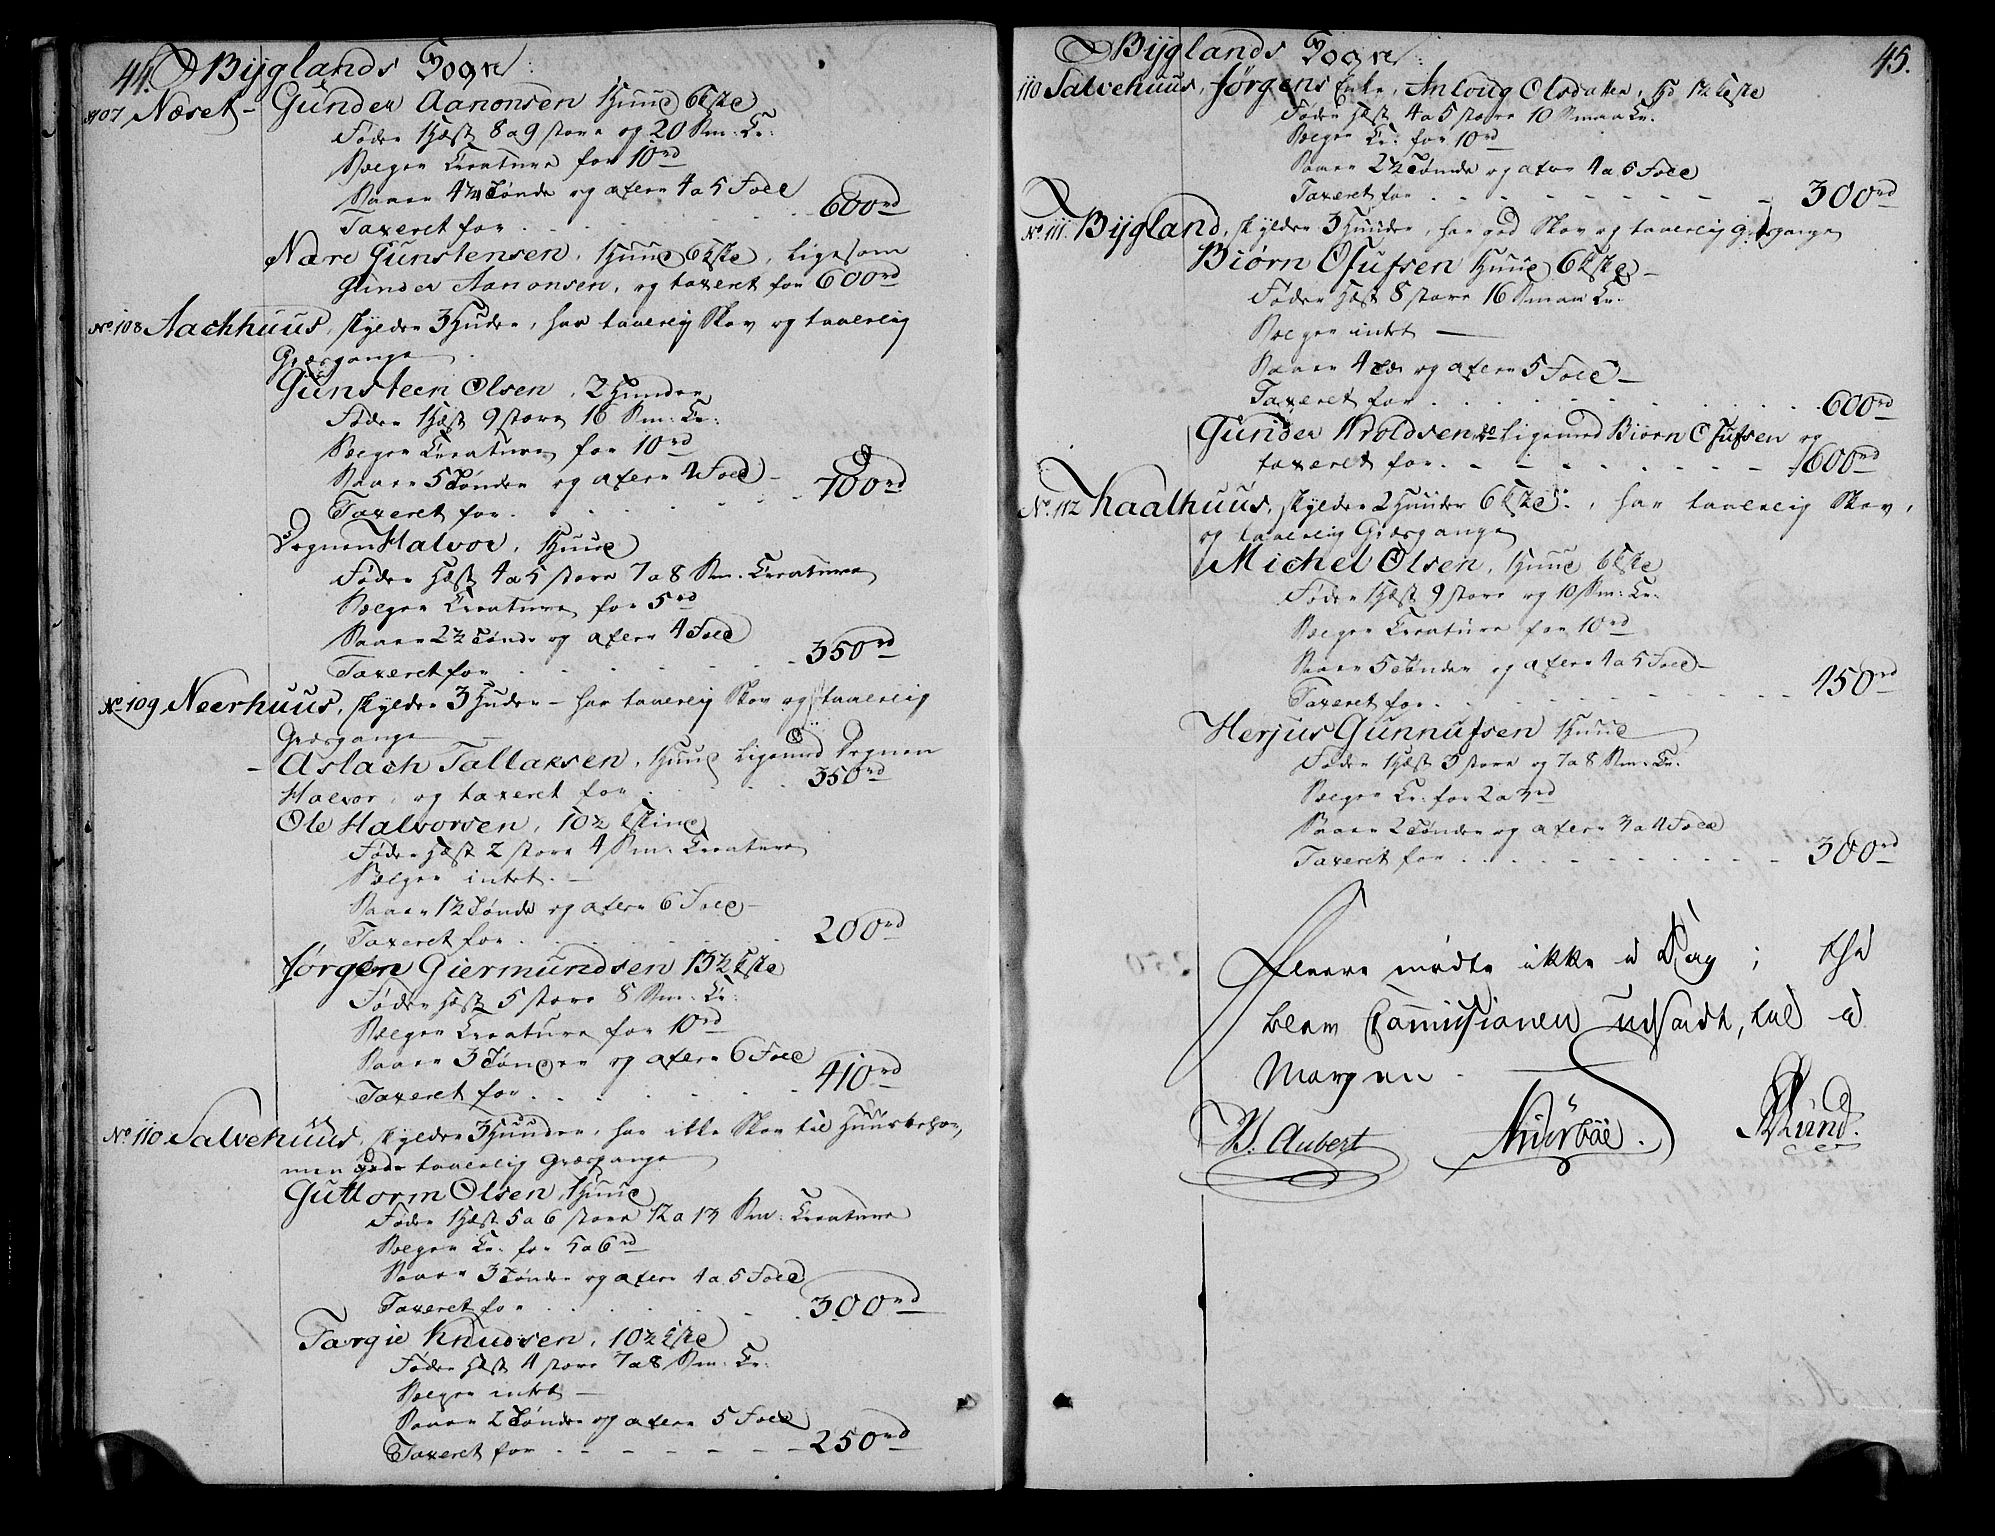 44. Byglands Sogn:
107 Næset - Gunder Aanonsen 1 Huud 6 Kskd
Føder 1 Hæst 8 a 9 store og 20 Sm: Kr:
Sælger Creature for 10 rd
Saaer 4½ Tønde og afler 4 a 5 Fold
Taxeret for . . . . 600 rd
Nære Gunstensen, 1 Huud 6 Kskd, ligesom
Gunder Aanonsen, og taxeret for 600 rd
No 108 Aachhuus, skylder 3 Huder, har taalelig Skov og taalelig
Græsgange
Gunsteen Olsen, 2 Huuder
Føder 1 Hæst 9 store 16 Sm: Kr:
Sælger Creature for 10 rd
Saaer 5 Tønder og afler 4 Fold -
Taxeret for . . . . 700 rd
Degnen Halvor, 1 Huud
Føder Hæst 4 a 5 store 7 a 8 Sm: Creature
Sælger Creature for 5 rd
Saaer 2½ Tønde og afler 4 Fold
Taxeret for . . . . 350 rd
No 109 Neerhuus, skylder 3 Huder - har taalelig Skov og taalelig
Græsgange
- Aslach Tallaksen, 1 Huud ligemed Degnen
Halvor, og taxeret for . . . 350 rd
Ole Halvorsen, 10½ Kskind
Føder Hæst 2 store 4 Sm: Creature
Sælger intet. -
Saaer 1½ Tønde og afler 6 Fold -
Taxeret for . . . . 200 rd
Jørgen Giermundsen 13½ Kskd
Føder Hæst 5 store 8 Sm: Kr:
Sælger Creature for 10 rd
Saaer 3 Tønder og afler 6 Fold
Taxeret for . . . . 410 rd
No 110 Salvehuus, skylder 3 Huuder, har ikke Skov til Huusbehov,
men taalelig Græsgange
Guttorm Olsen, 1 Huud
Føder 1 Hæst 5 a 6 store 12 a 13 Sm: Creature
Sælger Kr: for 5 a 6 rd
Saaer 3 Tønder og afler 4 a 5 Fold
Taxeret for . . . . 300 rd
Targie Knudsen, 10½ Kskd
Føder Hæst 4 store 7 a 8 Sm: Kr:
Sælger intet -
Saaer 2 Tønder og afler 5 Fold
Taxeret for - - - - 250 rd
Byglands Sogn: 45.
110 Salvehuus, Jørgens Enke, Anloug Olsdatter, 1½ Kskd
Føder Hæst 4 a 5 store 10 Smaa Kr.
Sælger Kr: for 10 rd
Saaer 2½ Tønde og afler 4 a 5 Fold
Taxeret for . - - - - 300 rd
No 111. Bygland, skylder 3 Huuder, har god Skov og taalelig Græsgange
Biørn Olufsen 1 Huud 6 Kskd -
Føder Hæst 8 store 16 Smaa Kr:
Sælger intet -
Saaer 4 Tdr og afler 5 Fold -
Taxeret for . . . . 600 rd
Gunder Aroldsen, do ligemed Biørn Olufsen og
taxeret for . - - - - 600 rd
No. 112 Kaalhuus, skylder 2 Huuder 6 Kskd:, har taalelig Skov,
og taalelig Græsgange
Michel Olsen, 1 Huud 6 Kskd
Føder 1 Hæst 9 store og 10 Sm: Kr:
Sælger Creature for 10 rd
Saaer 5 Tønder og afler 4 a 5 Fold -
Taxeret for . . . . 450 rd
Herjus Gunnufsen 1 Huud
Føder 1 Hæst 3 store og 7 a 8 Sm: Kr:
Sælger Kr: for 2 a 3 rd
Saaer 2 Tønder og afler 3 a 4 Fold
Taxeret for . . . . 300 rd
Fleere mødte ikke i Dag; thi
blev Commissionen udsadt, til i
Morgen.
B. Aubert Niderbøe. Lund.